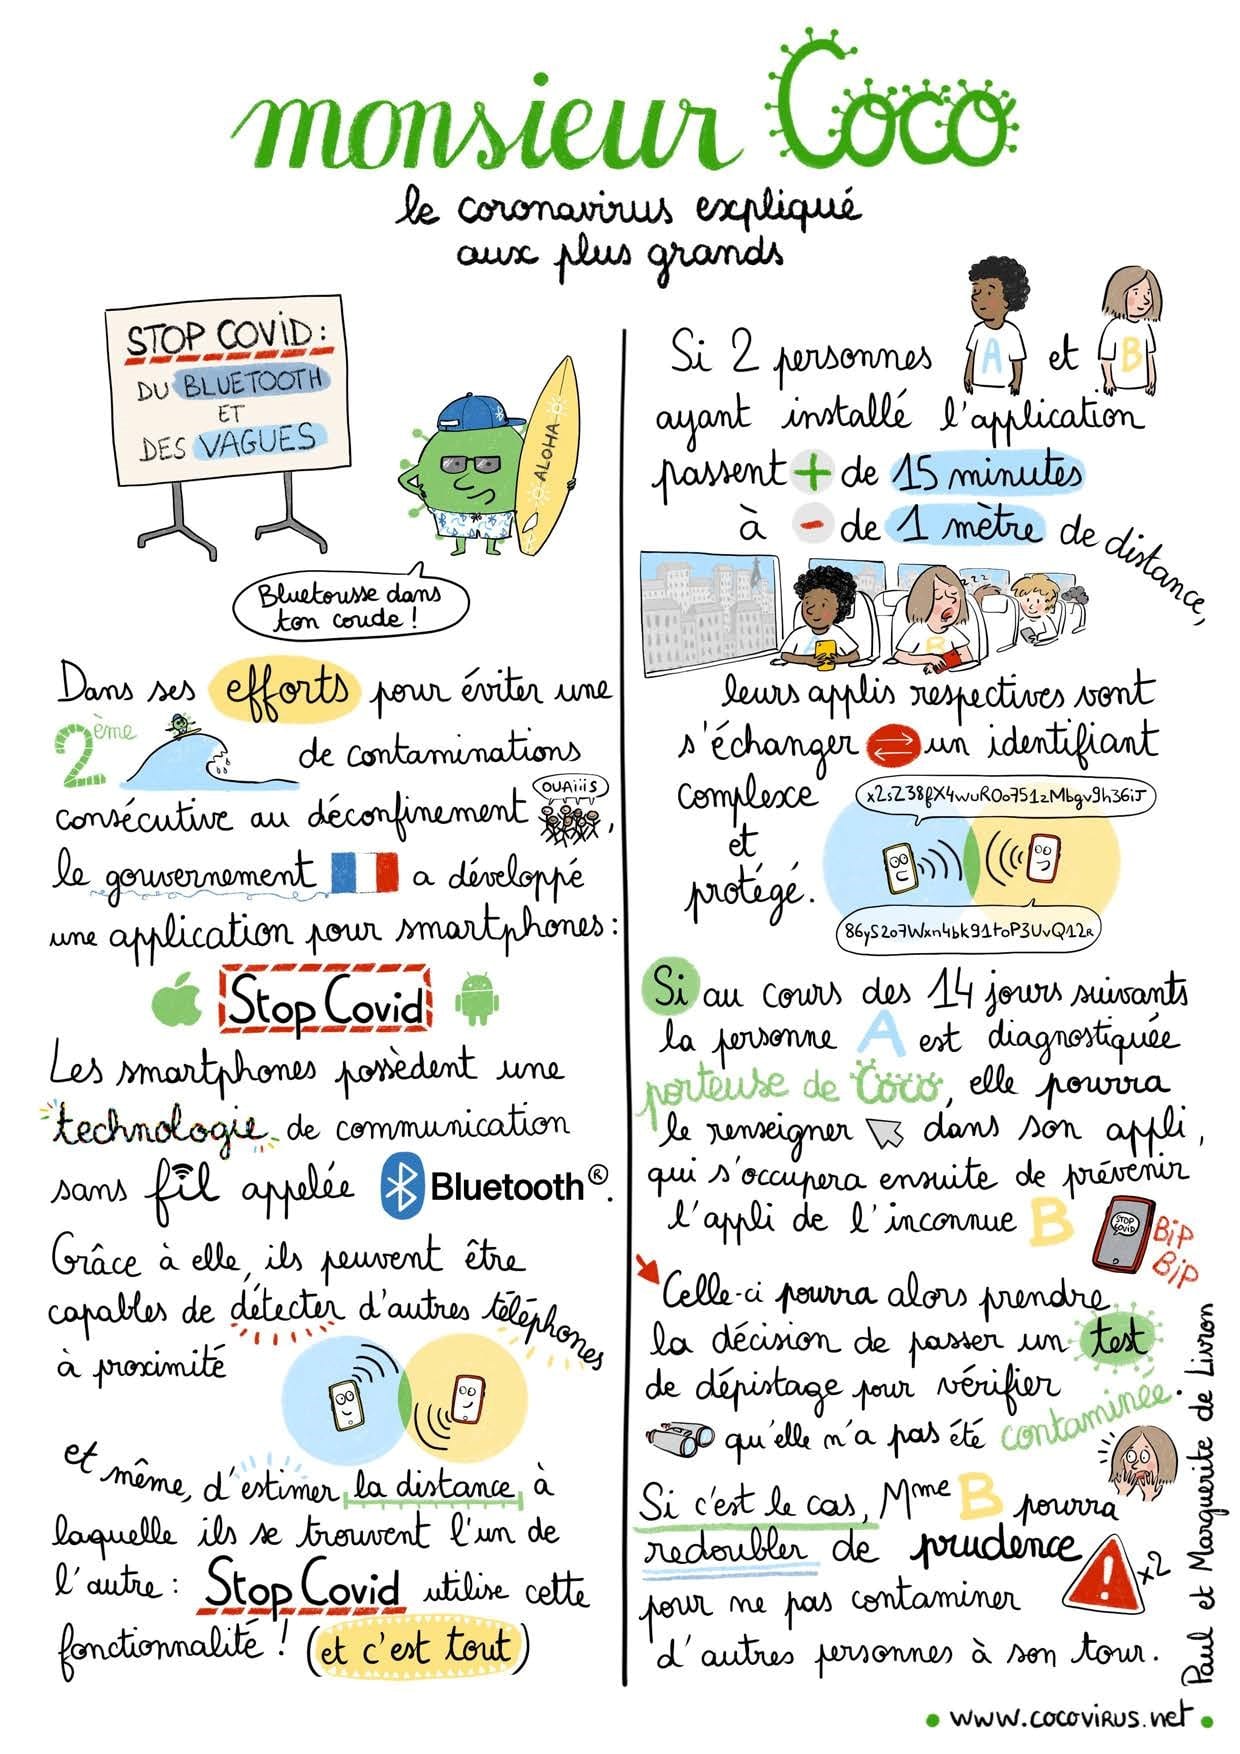 monsieur Coco
le coronavirus expliqué
aux plus grands
STOP COVID :
DU BLUETOOTH
ET
DES VAGUES
ALOHA
Bluetousse dans
ton coude !
Dans ses efforts pour éviter une
2ème
de contaminations
OUAiiiS
consécutive au déconfinement ,
le gouvernement a développé
une application pour smartphones :
Stop Covid
Les smartphones possèdent une
technologie de communication
sans fil appelée Bluetooth®.
Grâce à elle, ils peuvent être
capables de détecter d'autres téléphones
à proximité
et même, d'estimer la distance à
laquelle ils se trouvent l'un de
l'autre : Stop Covid utilise cette
fonctionnalité ! (et c'est tout)
Si 2 personnes A et B
ayant installé l'application
passent + de 15 minutes
à - de 1 mètre de distance,
zzz
A B
leurs applis respectives vont
s'échanger un identifiant
complexe
et
protégé.
x2sZ38fX4wuROo751zMbgv9h36iJ
86yS2o7Wxn4bk91toP3UvQ12R
Si au cours des 14 jours suivants
la personne A est diagnostiquée
porteuse de Coco, elle pourra
le renseigner dans son appli,
qui s'occupera ensuite de prévenir
l'appli de l'inconnue B
STOP COVID
BiP
BiP
Celle-ci pourra alors prendre
la décision de passer un test
de dépistage pour vérifier
qu'elle n'a pas été contaminée.
Si c'est le cas, Mme B pourra
redoubler de prudence
! x2
pour ne pas contaminer
d'autres personnes à son tour.
Paul et Marguerite de Livron
• www.cocovirus.net •